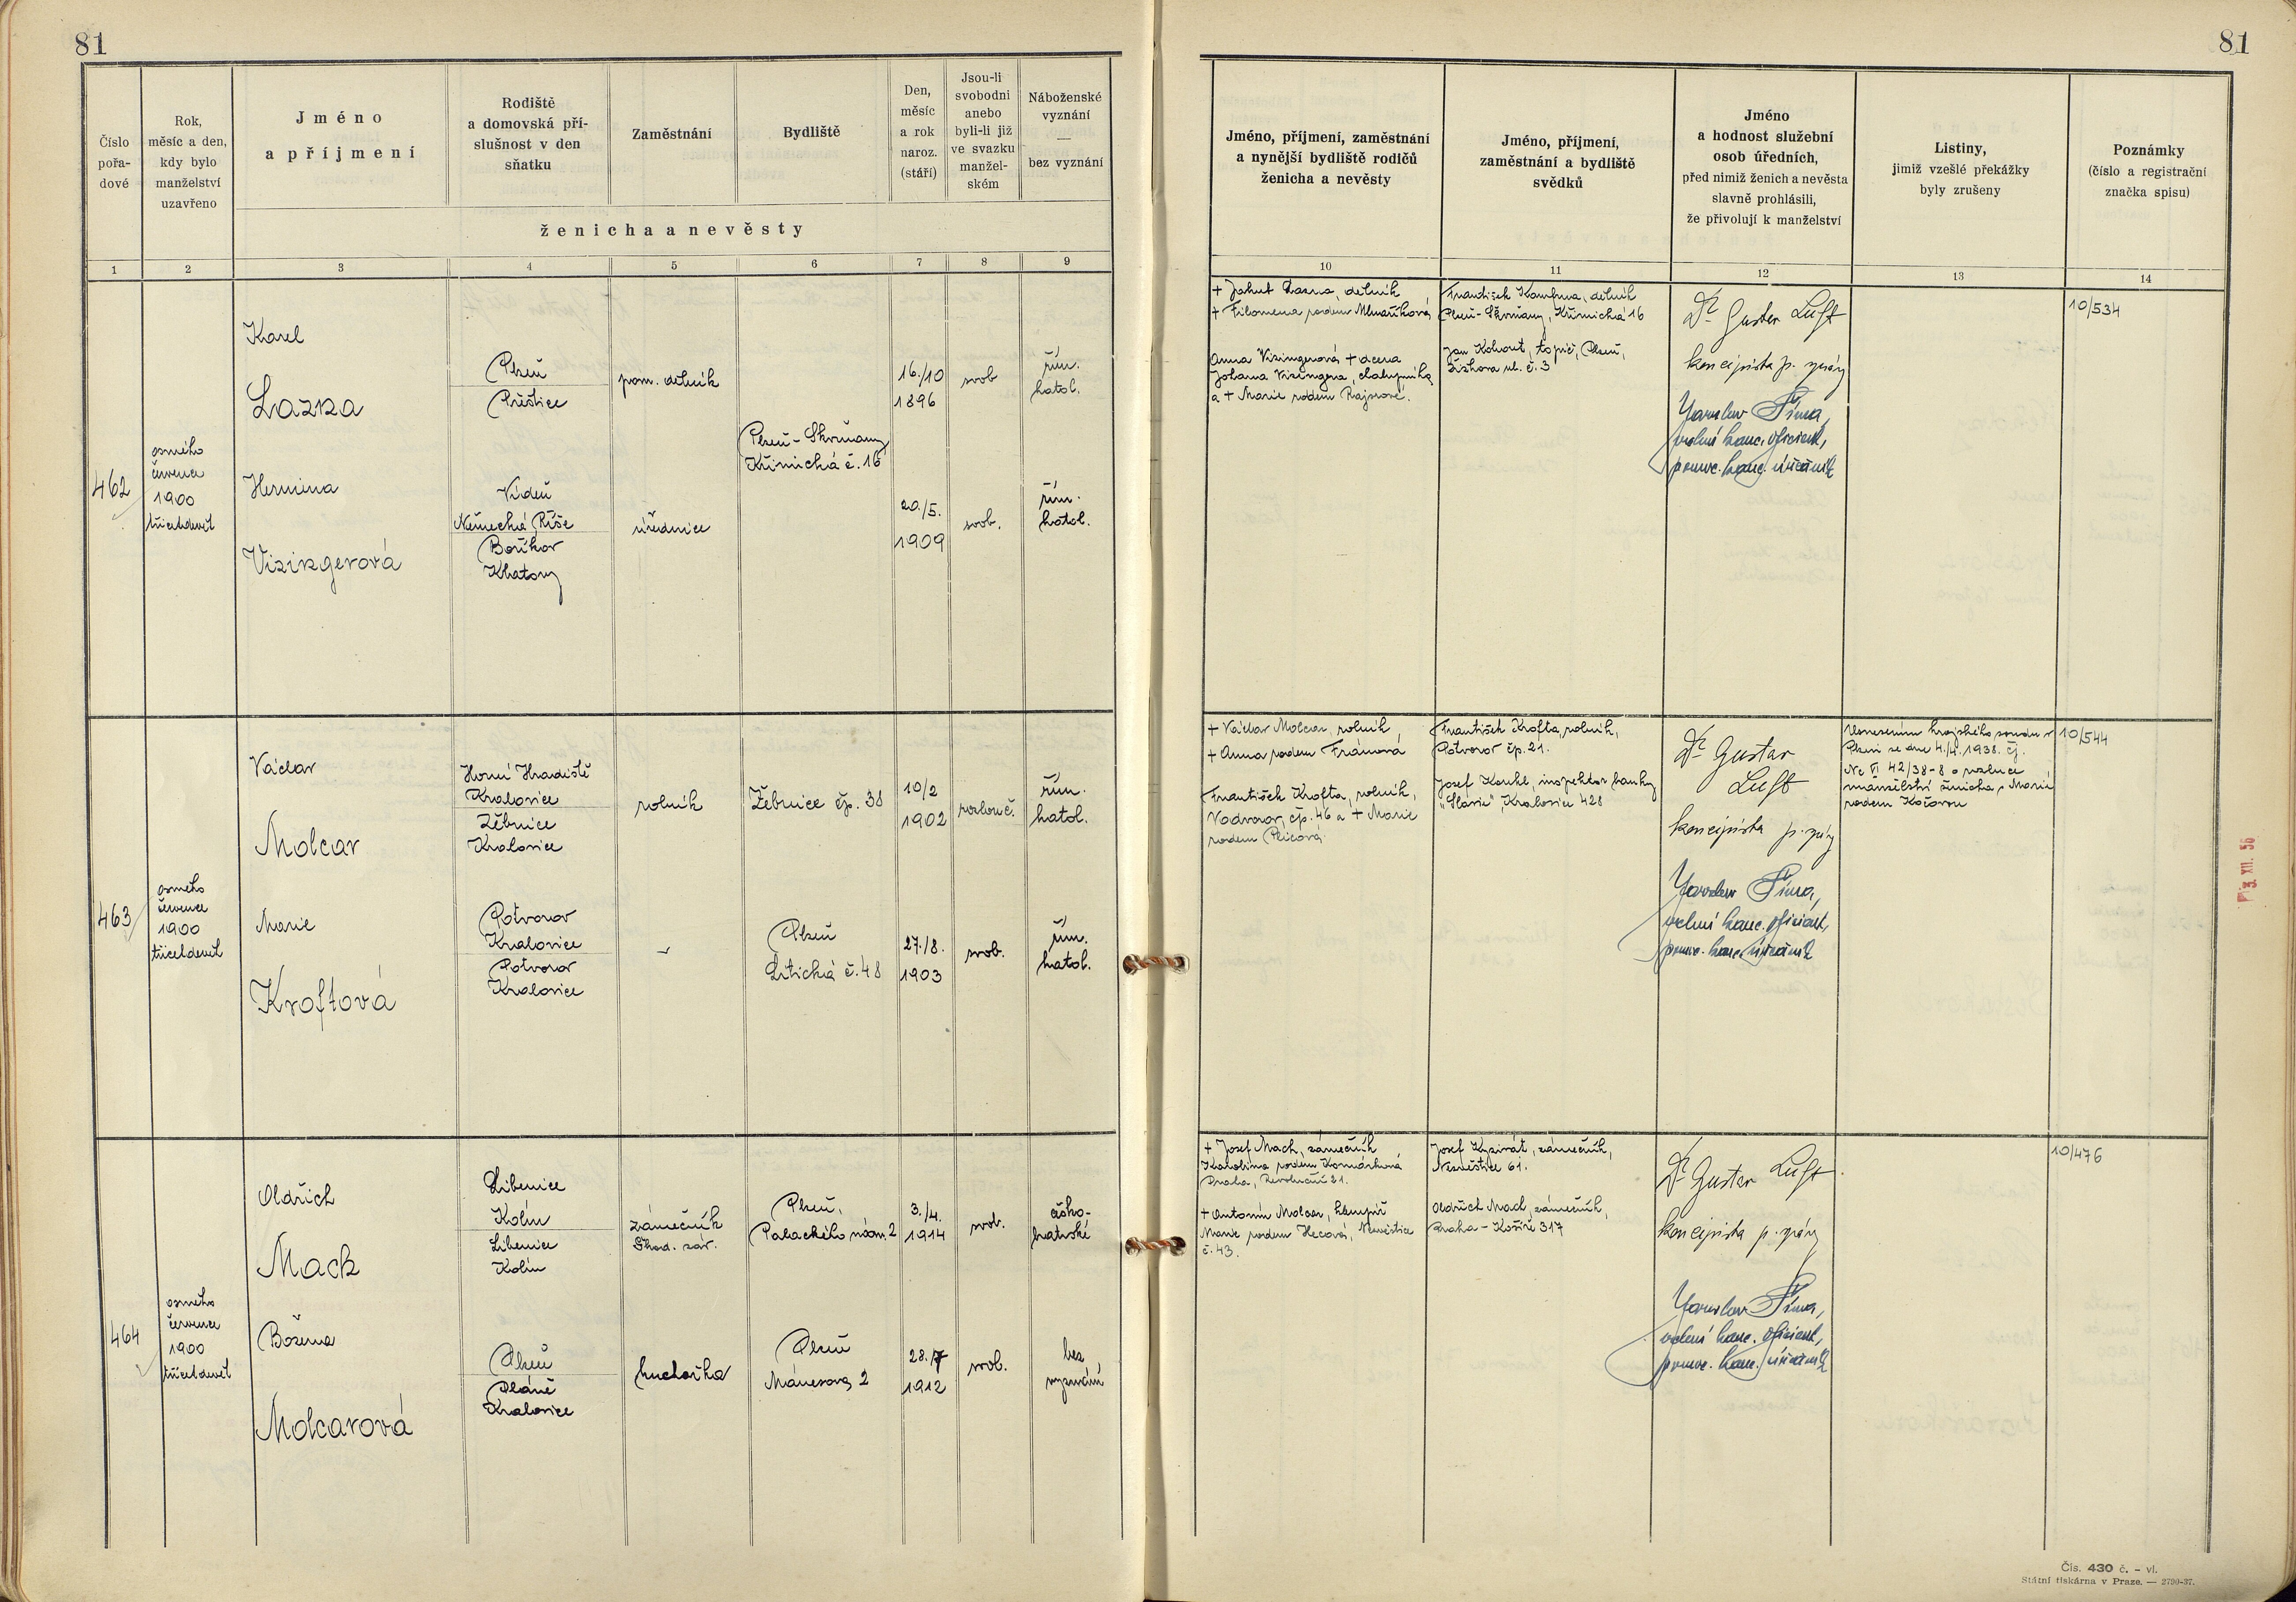 81
81
Číslo
pořa-
dové
Rok,
měsíc a den,
kdy bylo
manželství
uzavřeno
Jméno
a příjmení
Rodiště
a domovská pří-
slušnost v den
sňatku
Zaměstnání
Bydliště
Den,
měsíc
a rok
naroz.
(stáří)
Jsou-li
svobodni
anebo
byli-li již
ve svazku
manžel-
ském
Náboženské
vyznání
—
bez vyznání
ženicha a nevěsty
1 2 3 4 5 6 7 8 9
Jméno, příjmení, zaměstnání
a nynější bydliště rodičů
ženicha a nevěsty
Jméno, příjmení,
zaměstnání a bydliště
svědků
Jméno
a hodnost služební
osob úředních,
před nimiž ženich a nevěsta
slavně prohlásili,
že přivolují k manželství
Listiny,
jimiž vzešlé překážky
byly zrušeny
Poznámky
(číslo a registrační
značka spisu)
10 11 12 13 14
462
osmého
července
1900
třicetdevět
Karel
Lazna
Plzeň
Přeštice
pom. dělník
Plzeň-Skvrňany
Křimická č. 16
16./10
1896
svob
řím.
katol.
Hermina
Vizingerová
Vídeň
Německá Říše
Bořkov
Klatovy
úřednice
20./5.
1909
svob.
řím.
katol.
+ Jakub Lazna, dělník
+ Filomena rodem Mlnaříková
Anna Vizingerová + dcera
Johana Vizingera, chalupníka
a + Marie rodem Rajzrové.
František Kaufma, dělník
Plzeň-Skvrňany, Křimická 16
Jan Kohout, topič, Plzeň,
Žižkova ul. č. 3
Dr Gustav Luft
koncipista p. správy
Jaroslav Šíma,
vrchní kanc. oficiant,
pomoc. kanc. úředník
10/534
463
osmého
července
1900
třicetdevět
Václav
Molcar
Horní Hradiště
Kralovice
Žebnice
Kralovice
rolník
Žebnice čp. 38
10/2
1902
rozlouč.
řím.
katol.
Marie
Kroftová
Potvorov
Kralovice
Potvorov
Kralovice
-
Plzeň
Litická č. 48
27./8.
1903
svob.
řím.
katol.
+ Václav Molcar, rolník,
+ Anna rodem Fránová
František Krofta, rolník,
Vodvorov, čp. 46 a + Marie
rodem Plicová
František Krofta, rolník,
Potvorov čp. 21.
Josef Koukl, inspektor banky
"Slavie", Kralovice 428
Dr Gustav
Luft
koncipista p. správy
Jaroslav Šíma,
vrchní kanc. oficiant,
pomoc. kanc. úředník
Usnesením krajského soudu v
Plzni ze dne 4./4. 1938. čj.
Nc VI 42/38-8 o rozluce
manželství ženicha s Marií
rodem Kočovou
10/544
464
osmého
července
1900
třicetdevět
Oldřich
Mach
Libenice
Kolín
Libenice
Kolín
zámečník
Škod. záv.
Plzeň,
Palackého nám. 2
3./4.
1914
svob.
česko-
bratrské
Božena
Molcarová
Plzeň
Pláně
Kralovice
kuchařka
Plzeň
Mánesova 2
28./7
1912
svob.
bez
vyznání
+ Josef Mach, zámečník
Karolina rodem Komárková
Praha, Revoluční 21.
+ Antonín Molcar, klempíř
Marie rodem Hecová, Nezvěstice
č. 43.
zámečník,
Nezvěstice 61.
Oldřich Mach, zámečník,
Praha - Košíře 317
Dr Gustav Luft
koncipista p. správy
Jaroslav Šíma,
vrchní kanc. oficiant,
pomoc. kanc. úředník
10/476
3. XII. 56
Čís. 430 č. - vl.
Státní tiskárna v Praze. — 2790-37.